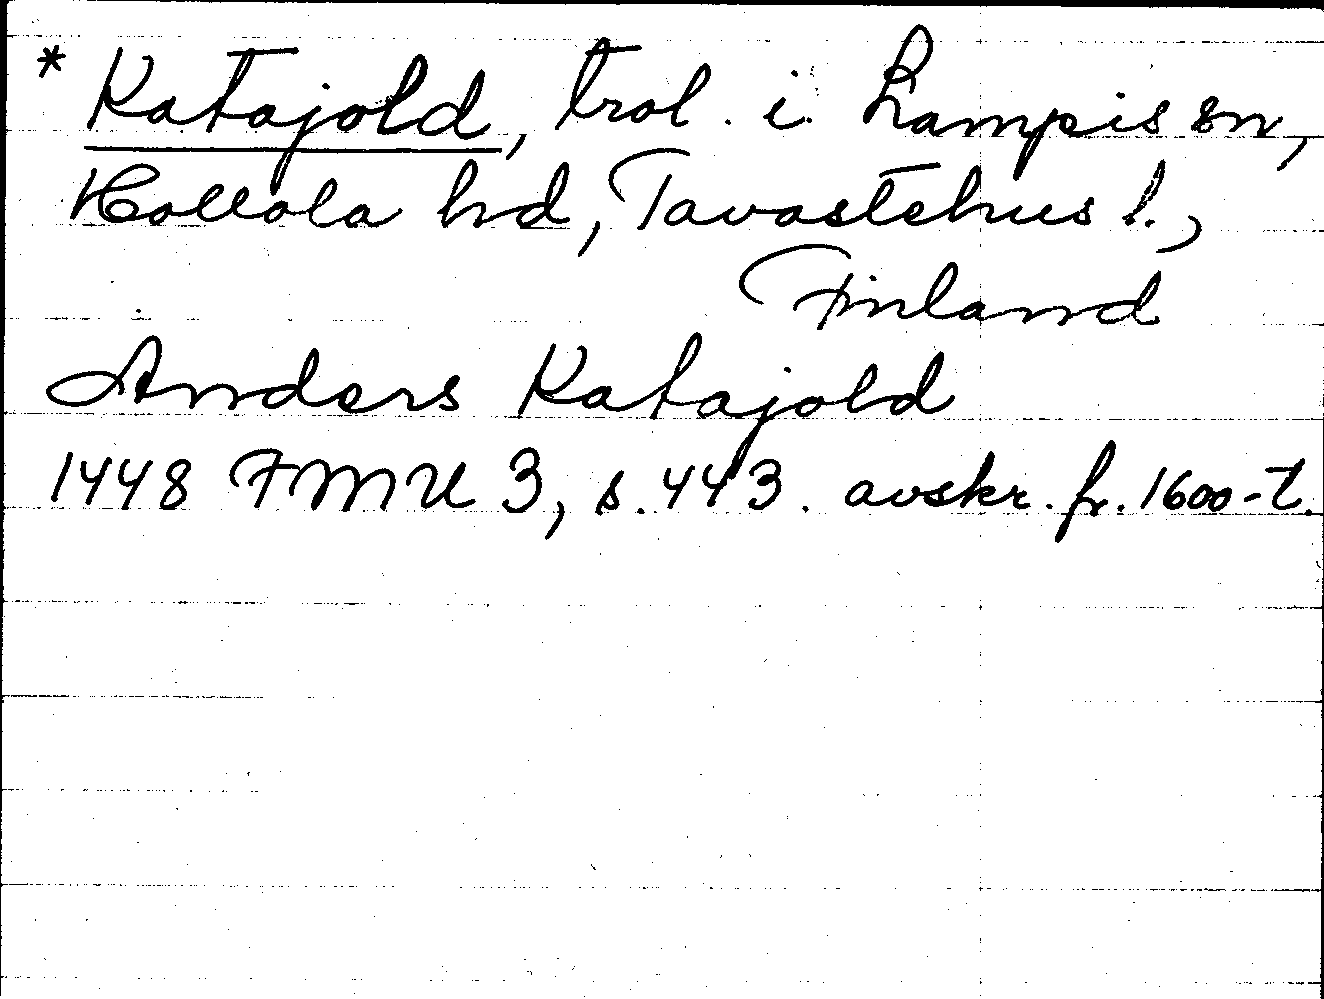 * Katajold, trol. i. Lampis sn,
Hollola hd, Tavastehus l.,
Finland
Anders Katajold
1448 FMU 3, s. 443. avskr. fr. 1600-t.